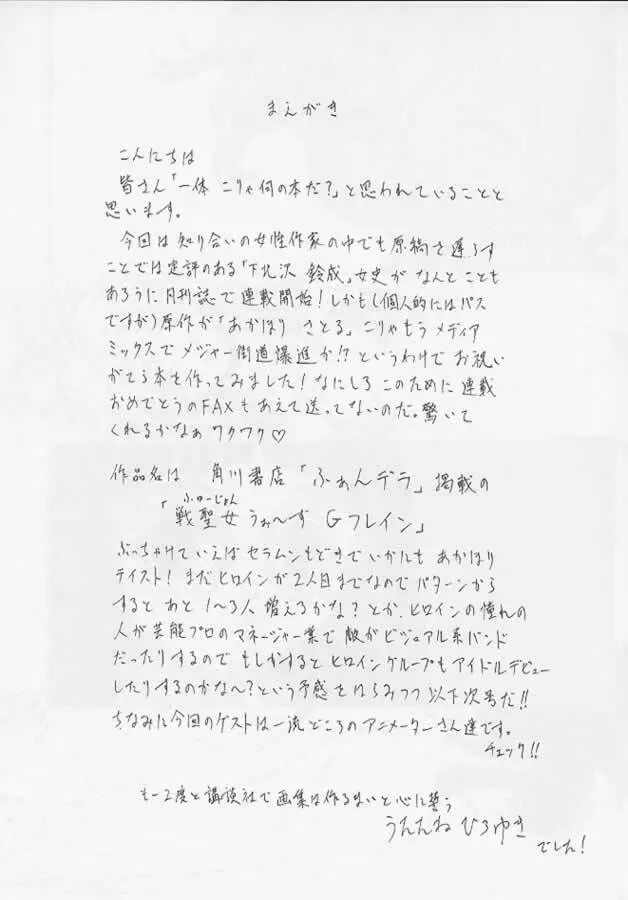 まえがき
こんにちは
皆さん「一体 こりゃ何の本だ?」と思われていることと
思います。
今回は知り合いの女性作家の中でも原稿を遅らす
ことでは定評のある「下北沢 鈴成」女史が なんと ことも
あろうに 月刊誌で 連載開始!しかも(個人的にはパス
ですが)原作が「あかほり さとる」こりゃもう メディア
ミックスで メジャー街道爆進か!?というわけで お祝い
がてら本を作ってみました!なにしろ このために 連載
おめでとうのFAXもあえて送ってないのだ。驚いて
くれるかなぁ ワクワク♡
作品名は 角川書店「ふぁんデラ」掲載の
ふゅーじょん
「戦聖女 うぁ〜ず Gフレイン」
ぶっちゃけていえばセラムンもどきでいかにも あかほり
テイスト! まだヒロインが2人目までなので パターンから
すると あと 1〜3人 増えるかな? とか、ヒロインの憧れの
人が芸能プロのマネージャー業で 敵がビジュアル系バンド
だったりするので もしかすると ヒロイングループも アイドルデビュー
したりするのかな〜?という予感をはらみつつ 以下次号だ!!
ちなみに今回のゲストは一流どころのアニメーターさん達です。
チェック!!
もー2度と講談社で画集は作るまいと心に誓う
うたたね ひろゆき
でした!